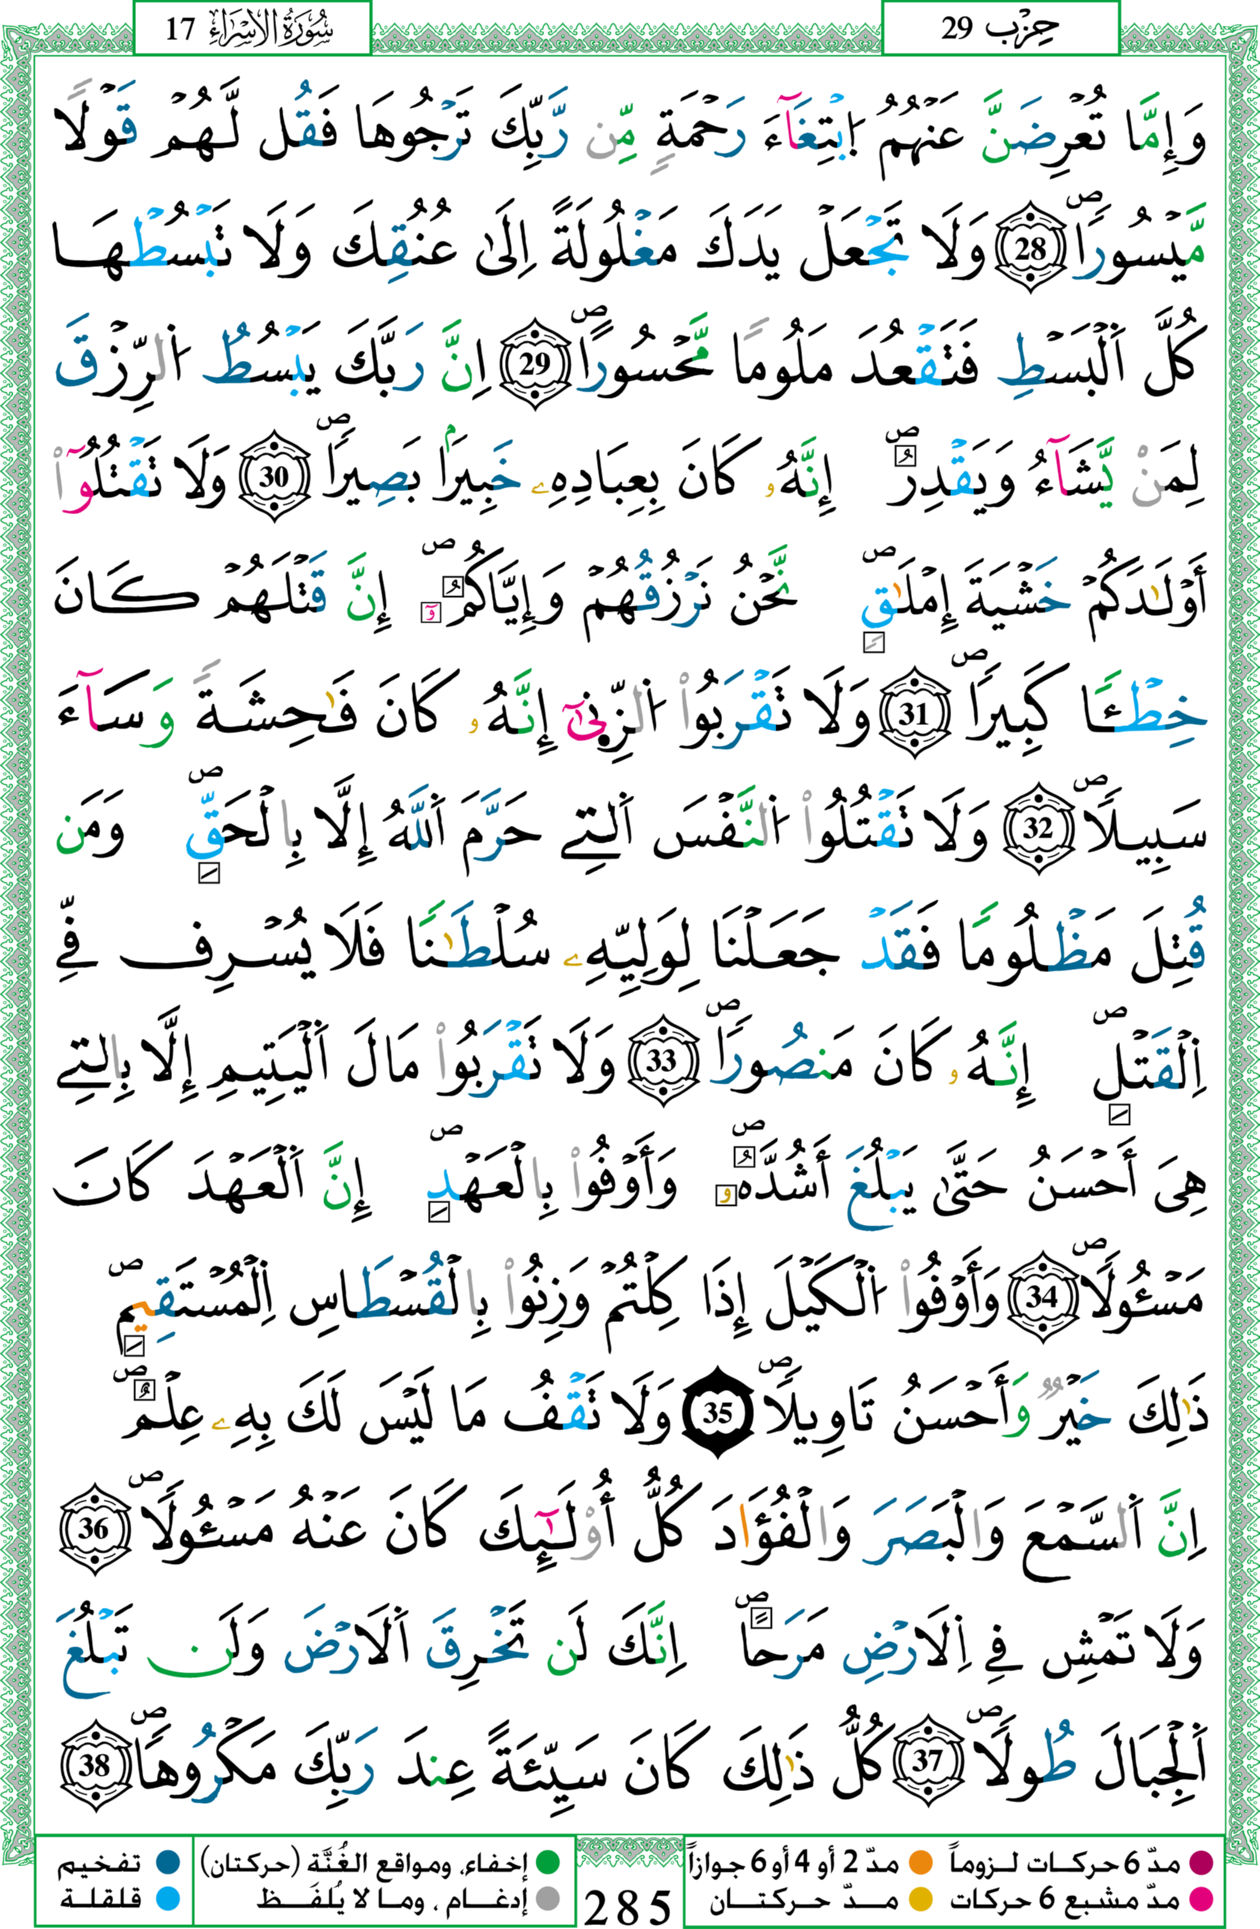 سُورَةُ الإِسْرَاءِ 17
حِزْب 29
وَإِمَّا تُعْرِضَنَّ عَنْهُمُ اُبْتِغَآءَ رَحْمَةٍ مِّن رَّبِّكَ تَرْجُوهَا فَقُل لَّهُمْ قَوْلًا
مَّيْسُورًاۖ 28 وَلَا تَجْعَلْ يَدَكَ مَغْلُولَةً اِلَىٰ عُنُقِكَ وَلَا تَبْسُطْهَا
كُلَّ اَلْبَسْطِ فَتَقْعُدَ مَلُومًا مَّحْسُورًاۖ 29 اِنَّ رَبَّكَ يَبْسُطُ اُلرِّزْقَ
لِمَنْ يَّشَآءُ وَيَقْدِرُۖ إِنَّهُۥ كَانَ بِعِبَادِهِۦ خَبِيرَۢا بَصِيرًاۖ 30 وَلَا تَقْتُلُوٓاْ
أَوْلَٰدَكُمْ خَشْيَةَ إِمْلَٰقٍۖ نَّحْنُ نَرْزُقُهُمْ وَإِيَّاكُمُۥٓۖ إِنَّ قَتْلَهُمْ كَانَ
خِطْـًٔا كَبِيرًاۖ 31 وَلَا تَقْرَبُواْ اُلزِّنَىٰٓ إِنَّهُۥ كَانَ فَٰحِشَةً وَسَآءَ
سَبِيلًاۖ 32 وَلَا تَقْتُلُواْ اُلنَّفْسَ اَلتِے حَرَّمَ اَللَّهُ إِلَّا بِالْحَقِّۖ وَمَن
قُتِلَ مَظْلُومًا فَقَدْ جَعَلْنَا لِوَلِيِّهِۦ سُلْطَٰنًا فَلَا يُسْرِف فِّے
اِلْقَتْلِۖ إِنَّهُۥ كَانَ مَنصُورًاۖ 33 وَلَا تَقْرَبُواْ مَالَ اَلْيَتِيمِ إِلَّا بِالتِے
هِيَ أَحْسَنُ حَتَّىٰ يَبْلُغَ أَشُدَّهُۥۖ وَأَوْفُواْ بِالْعَهْدِۖ إِنَّ اَلْعَهْدَ كَانَ
مَسْـُٔولًاۖ 34 وَأَوْفُواْ اُلْكَيْلَ إِذَا كِلْتُمْ وَزِنُواْ بِالْقُسْطَاسِ اِلْمُسْتَقِيمِۖ
ذَٰلِكَ خَيْرٌ وَأَحْسَنُ تَاوِيلًاۖ 35 وَلَا تَقْفُ مَا لَيْسَ لَكَ بِهِۦ عِلْمٌۖ
اِنَّ اَلسَّمْعَ وَالْبَصَرَ وَالْفُؤَادَ كُلُّ أُوْلَٰٓئِكَ كَانَ عَنْهُ مَسْـُٔولًاۖ 36
وَلَا تَمْشِ فِے اِلَارْضِ مَرَحًاۖ اِنَّكَ لَن تَخْرِقَ اَلَارْضَ وَلَن تَبْلُغَ
اَلْجِبَالَ طُولًاۖ 37 كُلُّ ذَٰلِكَ كَانَ سَيِّئَةً عِندَ رَبِّكَ مَكْرُوهًاۖ 38
مدّ 6 حركات لـزوماً مدّ 2 أو 4 أو 6 جوازاً
مدّ مشبع 6 حركات مــدّ حركـتــان
285
إخفاء، ومواقع الغُنَّة (حركتان) تفخيم
إدغــام ، ومـا لا يُلفَــظ قلقلة